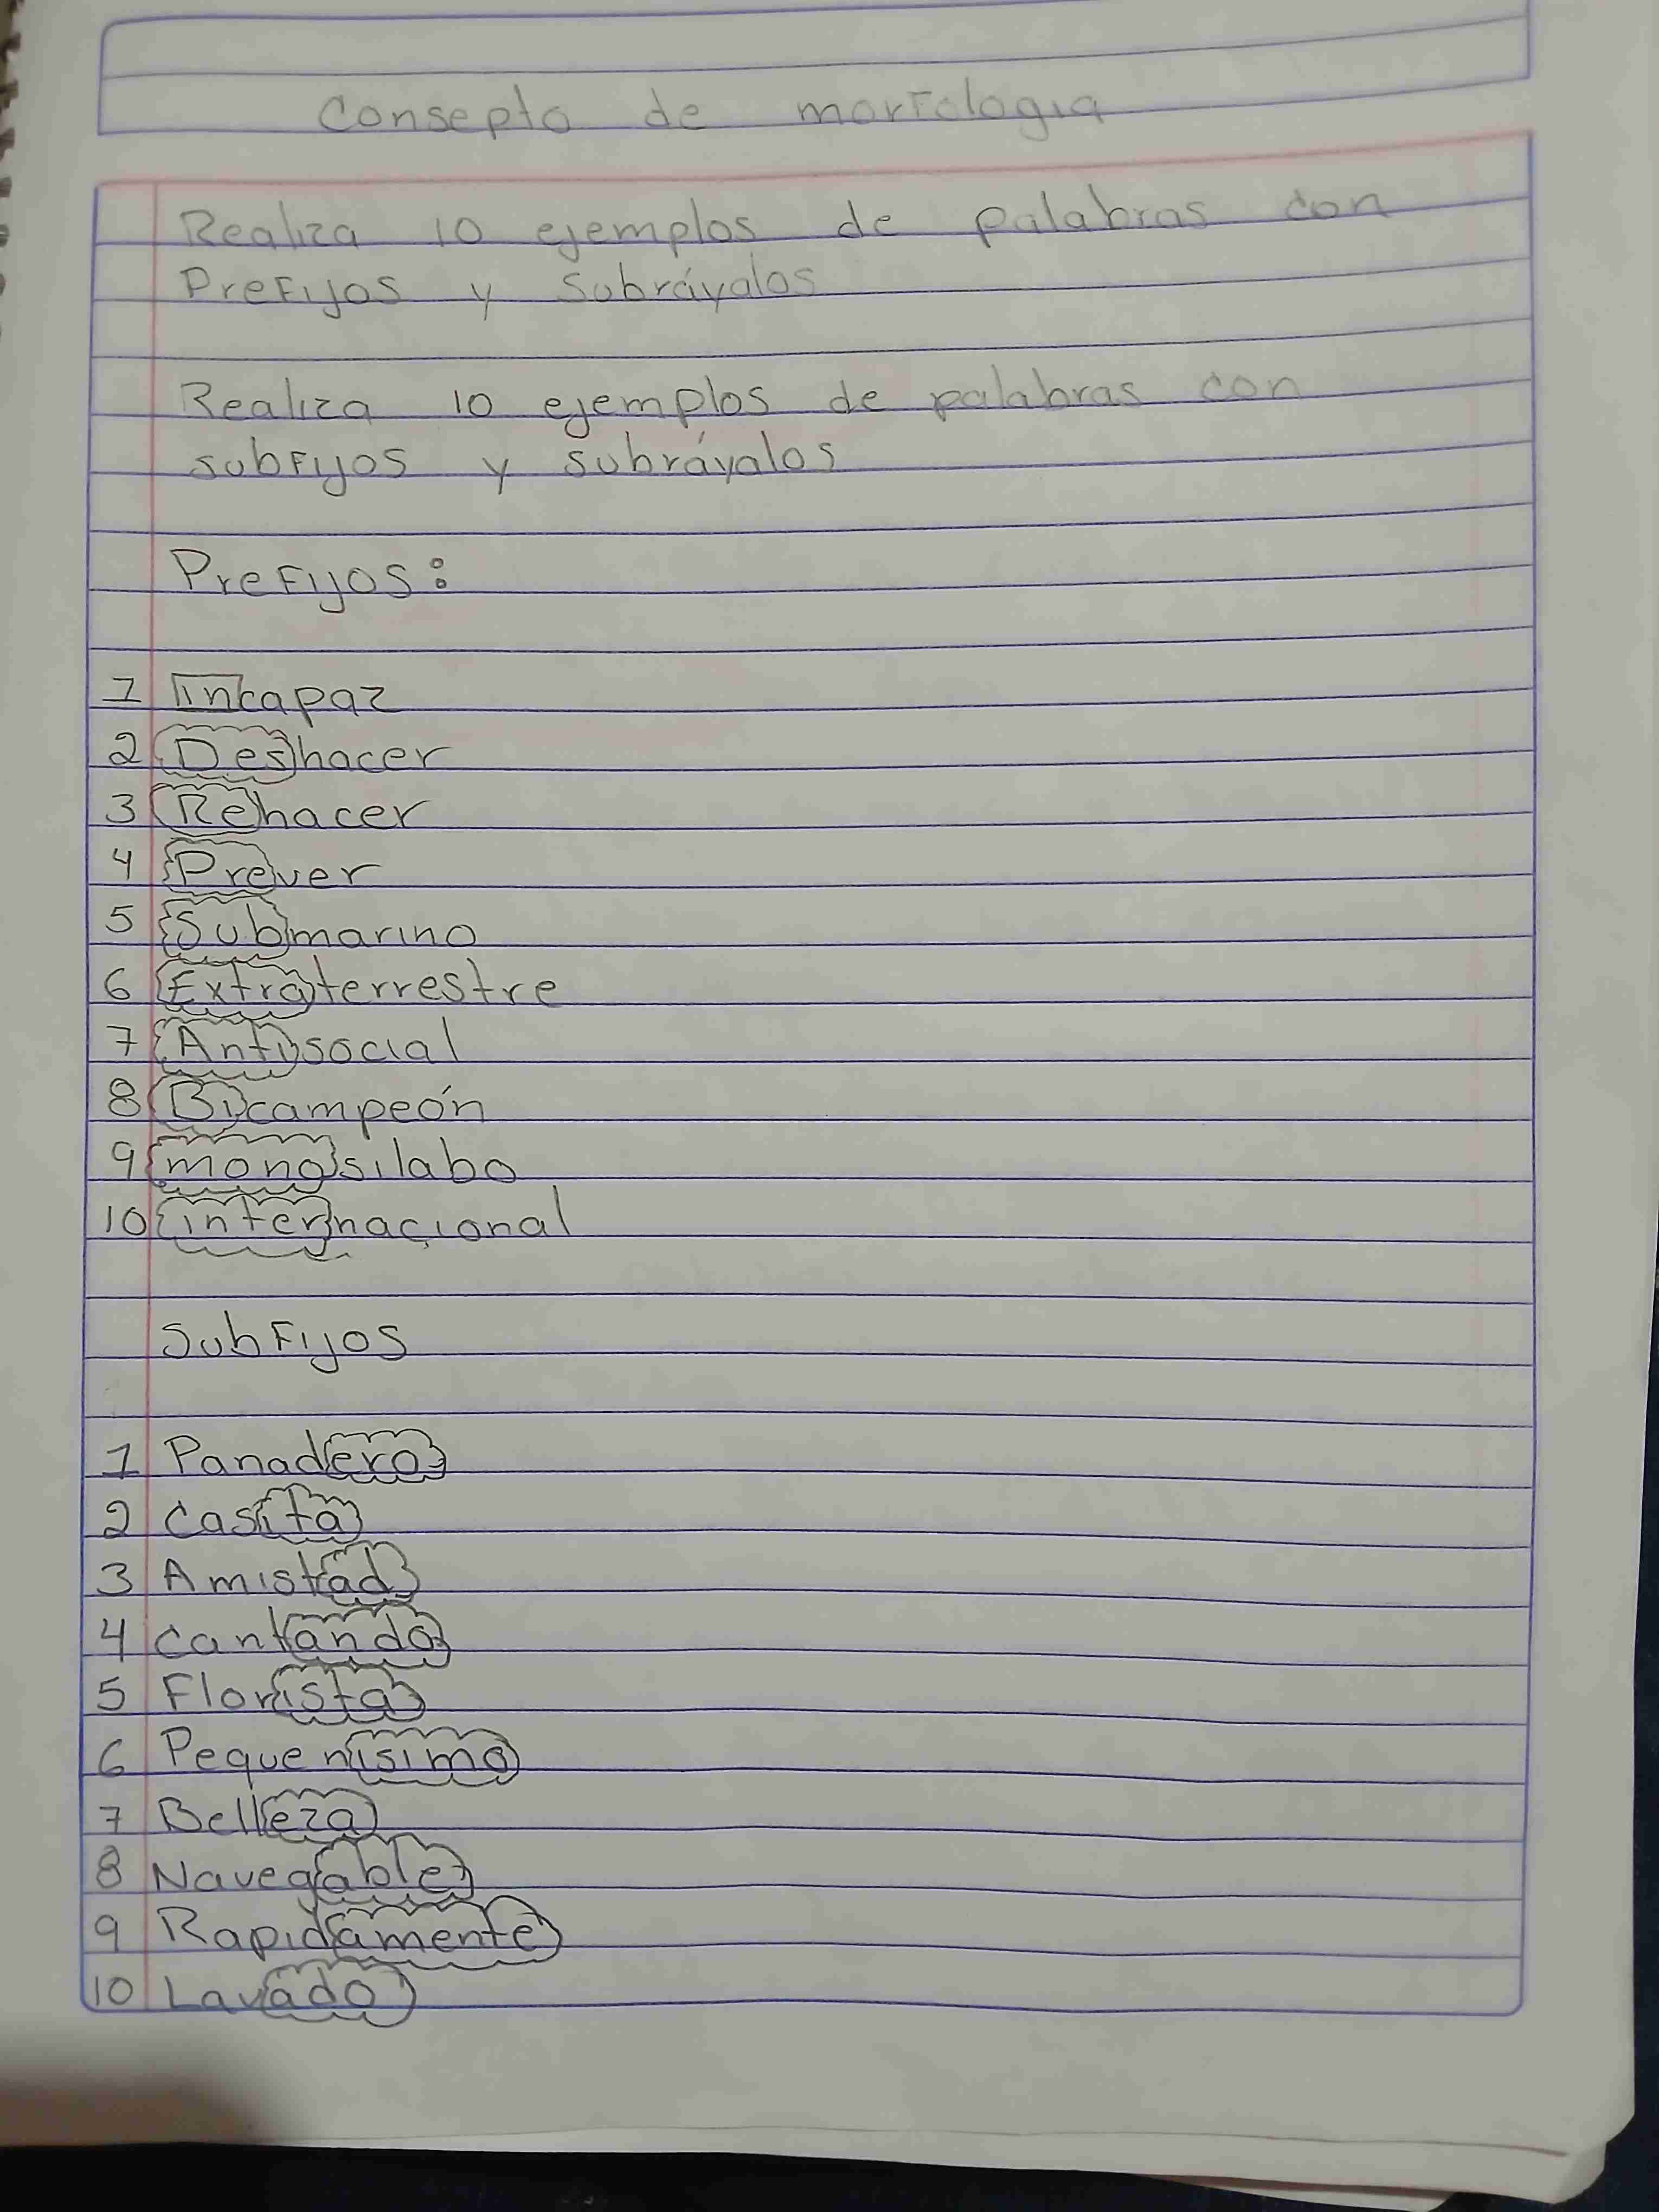 Consepto de morfologia
Realiza 10 ejemplos de palabras con
Prefijos y subráyalos
Realiza 10 ejemplos de palabras con
subfijos y subráyalos
Prefijos:
1 incapaz
2 Deshacer
3 Rehacer
4 Prever
5 Submarino
6 Extraterrestre
7 Antisocial
8 Bicampeón
9 monosilabo
10 internacional
Subfijos
1 Panadero
2 Casita
3 Amistad
4 Cantando
5 Florista
6 Pequenisimo
7 Belleza
8 Navegable
9 Rapidamente
10 Lavado